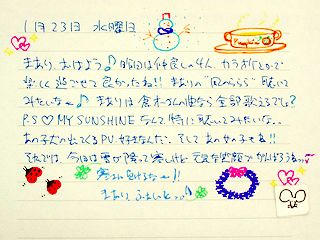 1月23日 水曜日
まあり、おはよう♪ 昨日は仲良しの4人、カラオケとかで
楽しく過ごせて良かったね!! まありの
みたいな〜♪ まありは倉木さんの曲なら全部歌えるでしょ?
P.S ♡ MY SUNSHINE なんて特に聴いてみたいな。
あの子犬の出てくるPV、好きなんだ。そして あの女の子もね!!
それでは、今日は雪が降って寒いけど 元気な笑顔でがんばろうねっ
寒さに負けるな〜!!
まあり ふぁいとっ♪